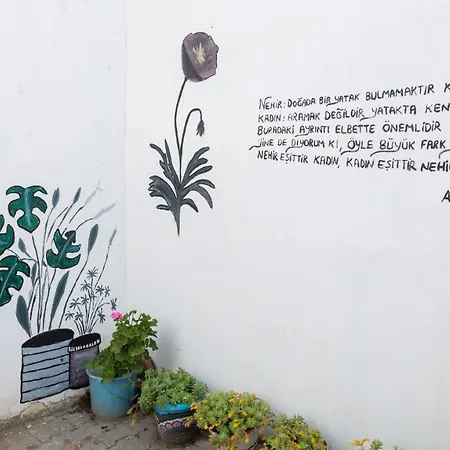 NEHİR: DOĞADA BİR YATAK BULMAMAKTIR K
KADIN: ARAMAK DEĞİLDİR YATAKTA KEN
BURADAKİ AYRINTI ELBETTE ÖNEMLİDİR
YİNE DE DİYORUM Kİ, ÖYLE BÜYÜK FARK
NEHİR EŞİTTİR KADIN, KADIN EŞİTTİR NEHİ
A